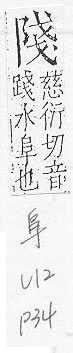 慈衍切音
踐水阜也
阜
U12
P34